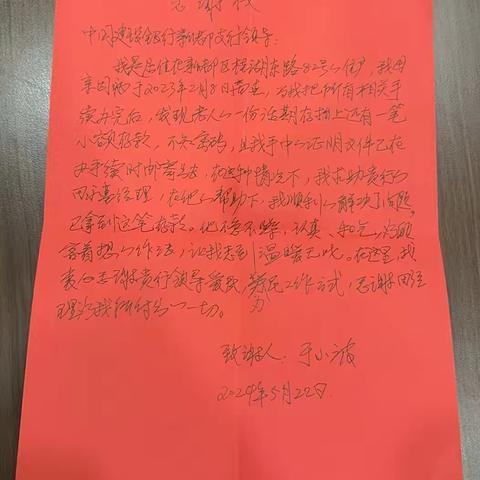 感谢信
中国建设银行新都支行领导:
我是居住在新都区桂湖东路82号的住户,我母
亲因病于2023年2月8日去世,当我把所有相关手
续办完后,发现老人的一份活期存折上还有一笔
小额存款,不知密码,且我手中的证明文件已在
办手续时邮寄出去,在这种情况下,我求助贵行的
田经理,在他的帮助下,我顺利的解决了问题,
已拿到这笔存款。他不厌不躁,认真、和气,为顾
客着想的工作方法,让我感到温暖。在这里,我
衷心感谢贵行领导为民工作方式,感谢田经
理为我所付出的一切。
致谢人:于小波
2024年5月22日.